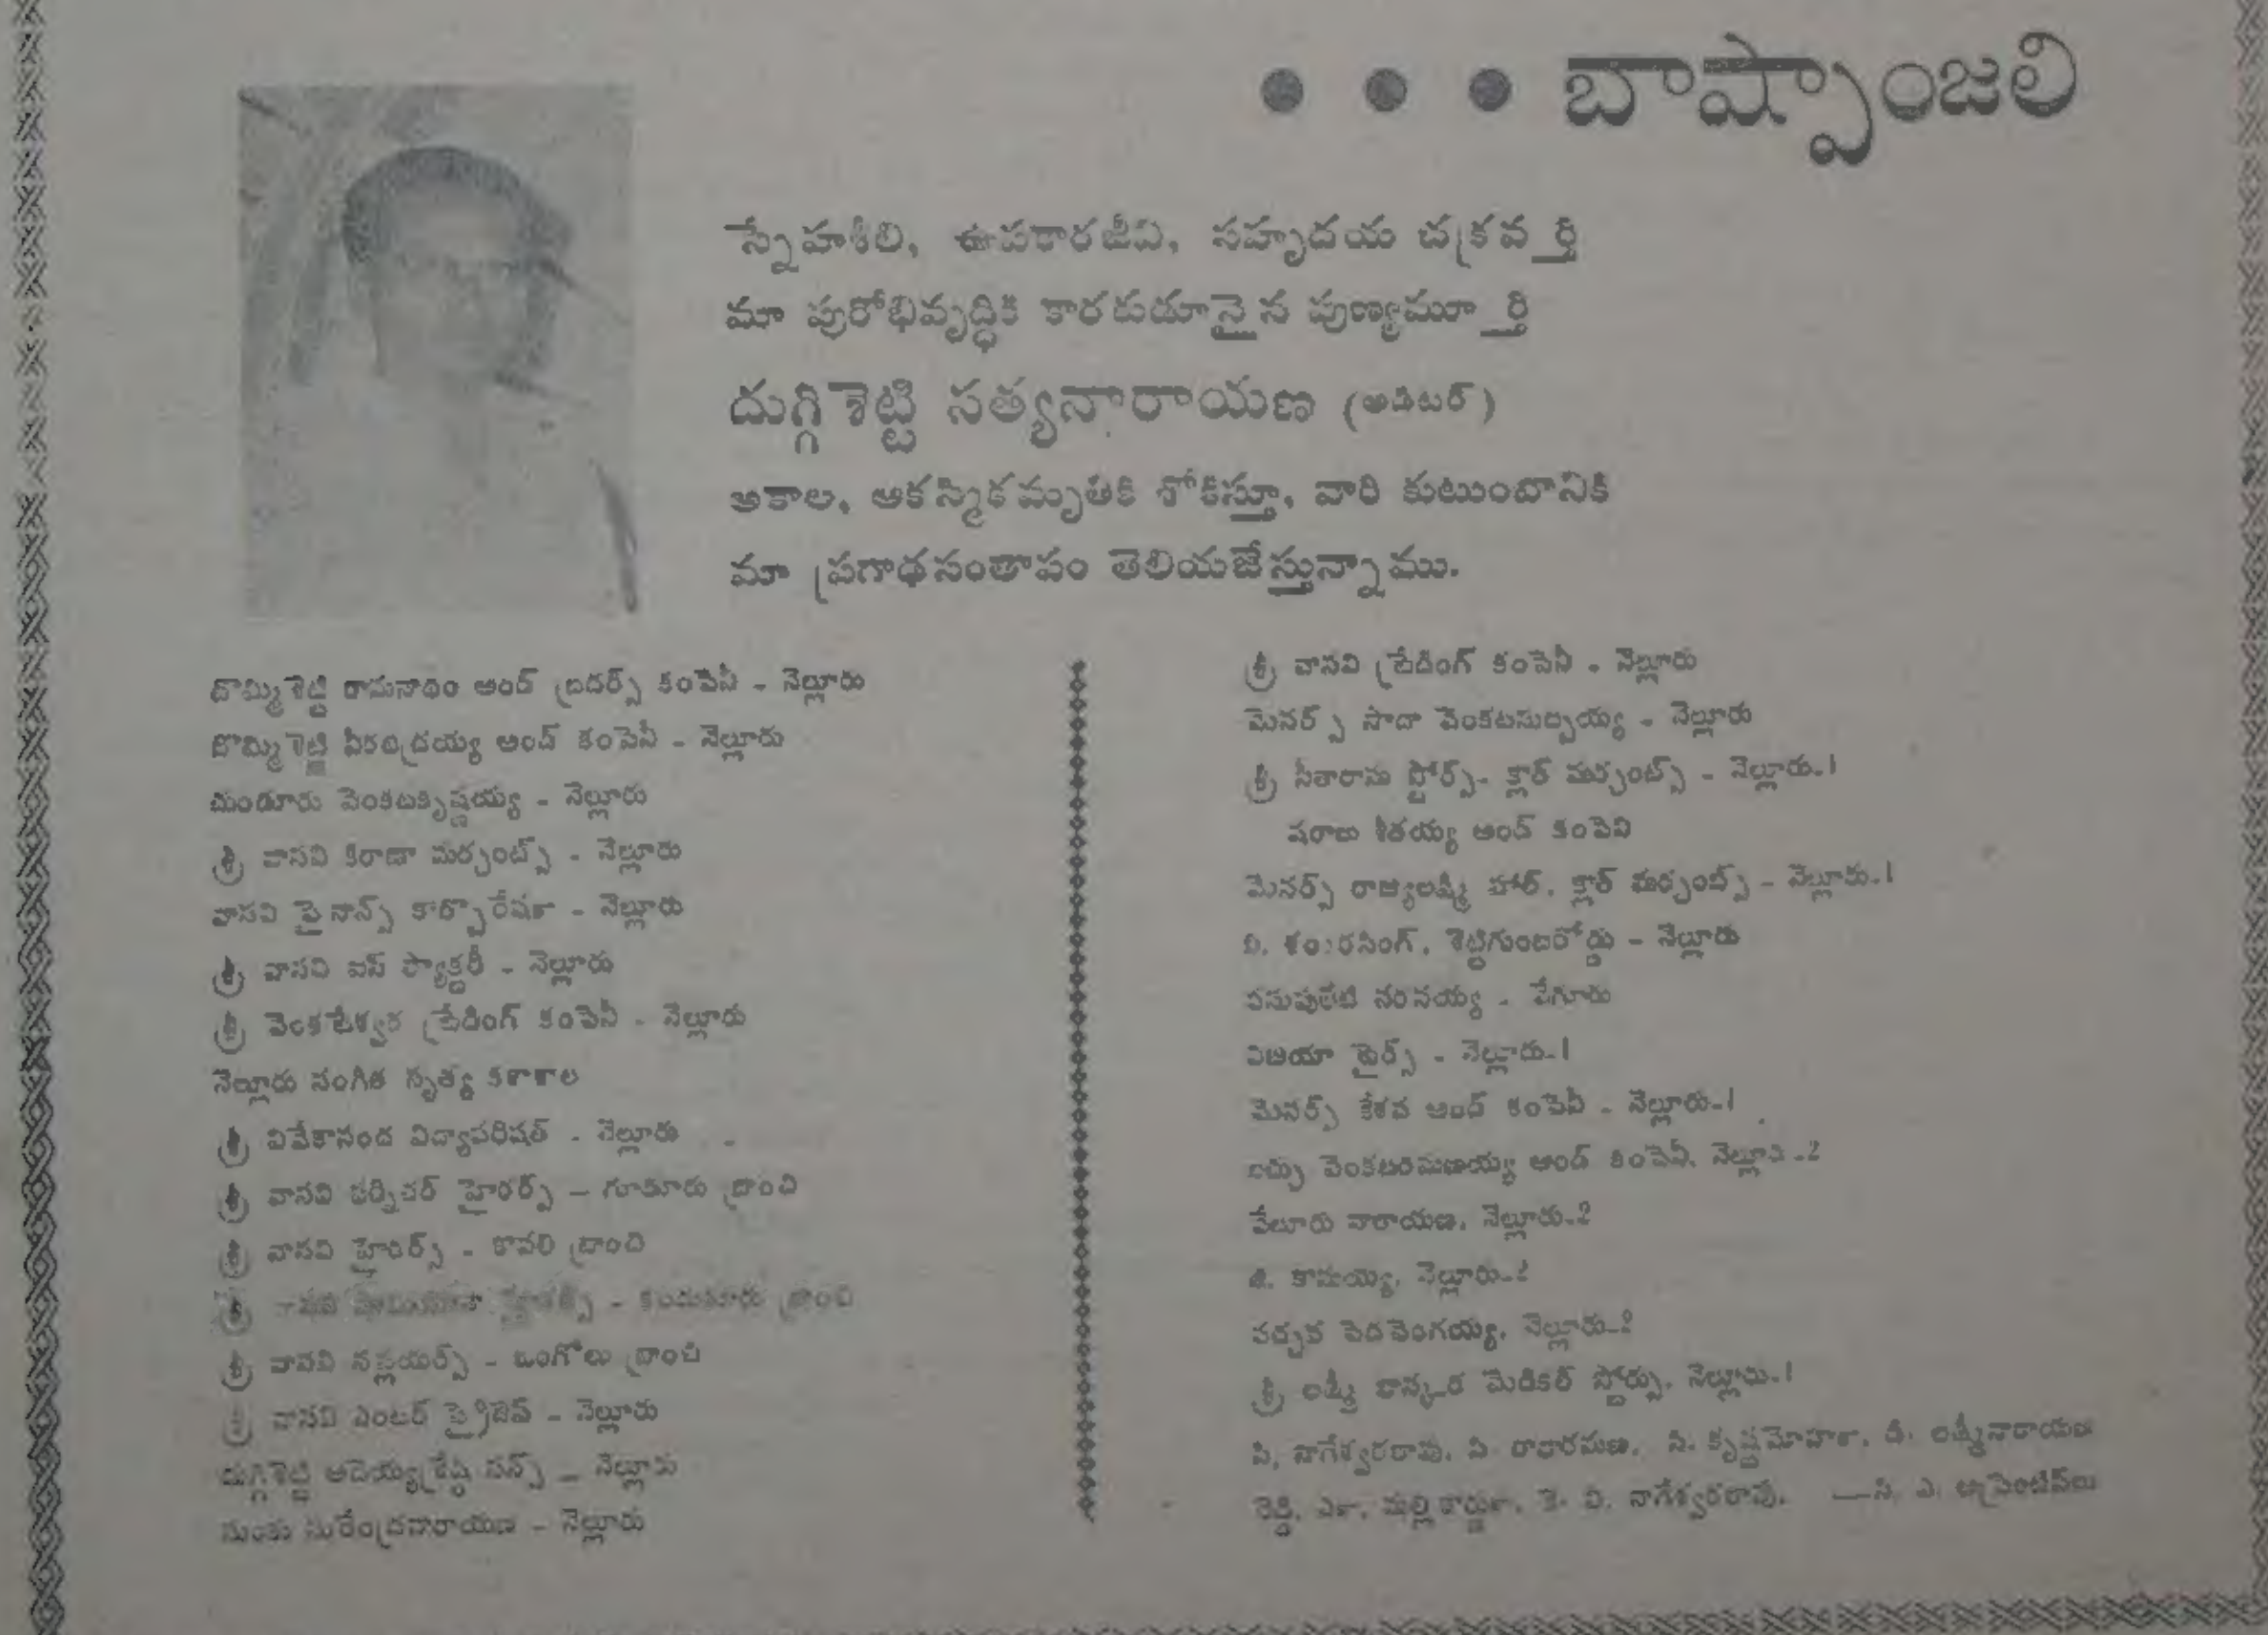 • • • బాష్పాంజలి
స్నేహశీలి, ఉపకారజీవి, సహృదయ చక్రవర్తి
మా పురోభివృద్ధికి కారకుడూనైన పుణ్యమూర్తి
దుగ్గిశెట్టి సత్యనారాయణ (ఆడిటర్)
అకాల, ఆకస్మికమృతికి శోకిస్తూ, వారి కుటుంబానికి
మా ప్రగాఢసంతాపం తెలియజేస్తున్నాము.
దొమ్మిశెట్టి రామనాథం అండ్ బ్రదర్స్ కంపెనీ - నెల్లూరు
దొమ్మిశెట్టి వీరభద్రయ్య అండ్ కంపెనీ - నెల్లూరు
వెంకటకృష్ణయ్య - నెల్లూరు
శ్రీ వాసవి కిరాణా మర్చంట్స్ - నెల్లూరు
వాసవి ఫైనాన్స్ కార్పొరేషన్ - నెల్లూరు
శ్రీ వాసవి ఐస్ ఫ్యాక్టరీ - నెల్లూరు
శ్రీ వెంకటేశ్వర ట్రేడింగ్ కంపెనీ - నెల్లూరు
నెల్లూరు సంగీత నృత్య కళాశాల
శ్రీ వివేకానంద విద్యాపరిషత్ - నెల్లూరు
శ్రీ వాసవి ఫర్నిచర్ హైరర్స్ - గూడూరు బ్రాంచి
శ్రీ వాసవి హైరర్స్ - కావలి బ్రాంచి
శ్రీ వాసవి - కందుకూరు బ్రాంచి
శ్రీ వాసవి సప్లయర్స్ - ఒంగోలు బ్రాంచి
శ్రీ వాసవి ఎంటర్ ప్రైజెస్ - నెల్లూరు
దుగ్గిశెట్టి ఆదెయ్యశ్రేష్ఠి సన్స్ - నెల్లూరు
సురేంద్రనారాయణ - నెల్లూరు
శ్రీ వాసవి ట్రేడింగ్ కంపెనీ - నెల్లూరు
మెసర్స్ సాదా వెంకటసుబ్బయ్య - నెల్లూరు
శ్రీ సీతారామ స్టోర్స్, క్లాత్ మర్చంట్స్ - నెల్లూరు-1
షరాబు శీతయ్య అండ్ కంపెని
మెసర్స్ రాజ్యలక్ష్మి హాల్, క్లాత్ మర్చంట్స్ - నెల్లూరు-1
శంకరసింగ్, శెట్టిగుంటరోడ్డు - నెల్లూరు
పసుపులేటి నరసయ్య - పేగూరు
విజయా ఫైర్స్ - నెల్లూరు-1
మెసర్స్ కేశవ అండ్ కంపెనీ - నెల్లూరు-1
వెంకటరమణయ్య అండ్ కంపెనీ, నెల్లూరు-2
వేలూరు నారాయణ, నెల్లూరు-2
కామయ్య, నెల్లూరు-2
పెదవెంగయ్య, నెల్లూరు-2
శ్రీ లక్ష్మీ భాస్కర మెడికల్ స్టోర్సు, నెల్లూరు-1
పి. నాగేశ్వరరావు, వి. రాధారమణ, సి. కృష్ణమోహన్, డి. లక్ష్మీనారాయణ
రెడ్డి, ఎన్. మల్లికార్జున్, కె. వి. నాగేశ్వరరావు. —సి. ఎ. అప్రెంటిస్‌లు